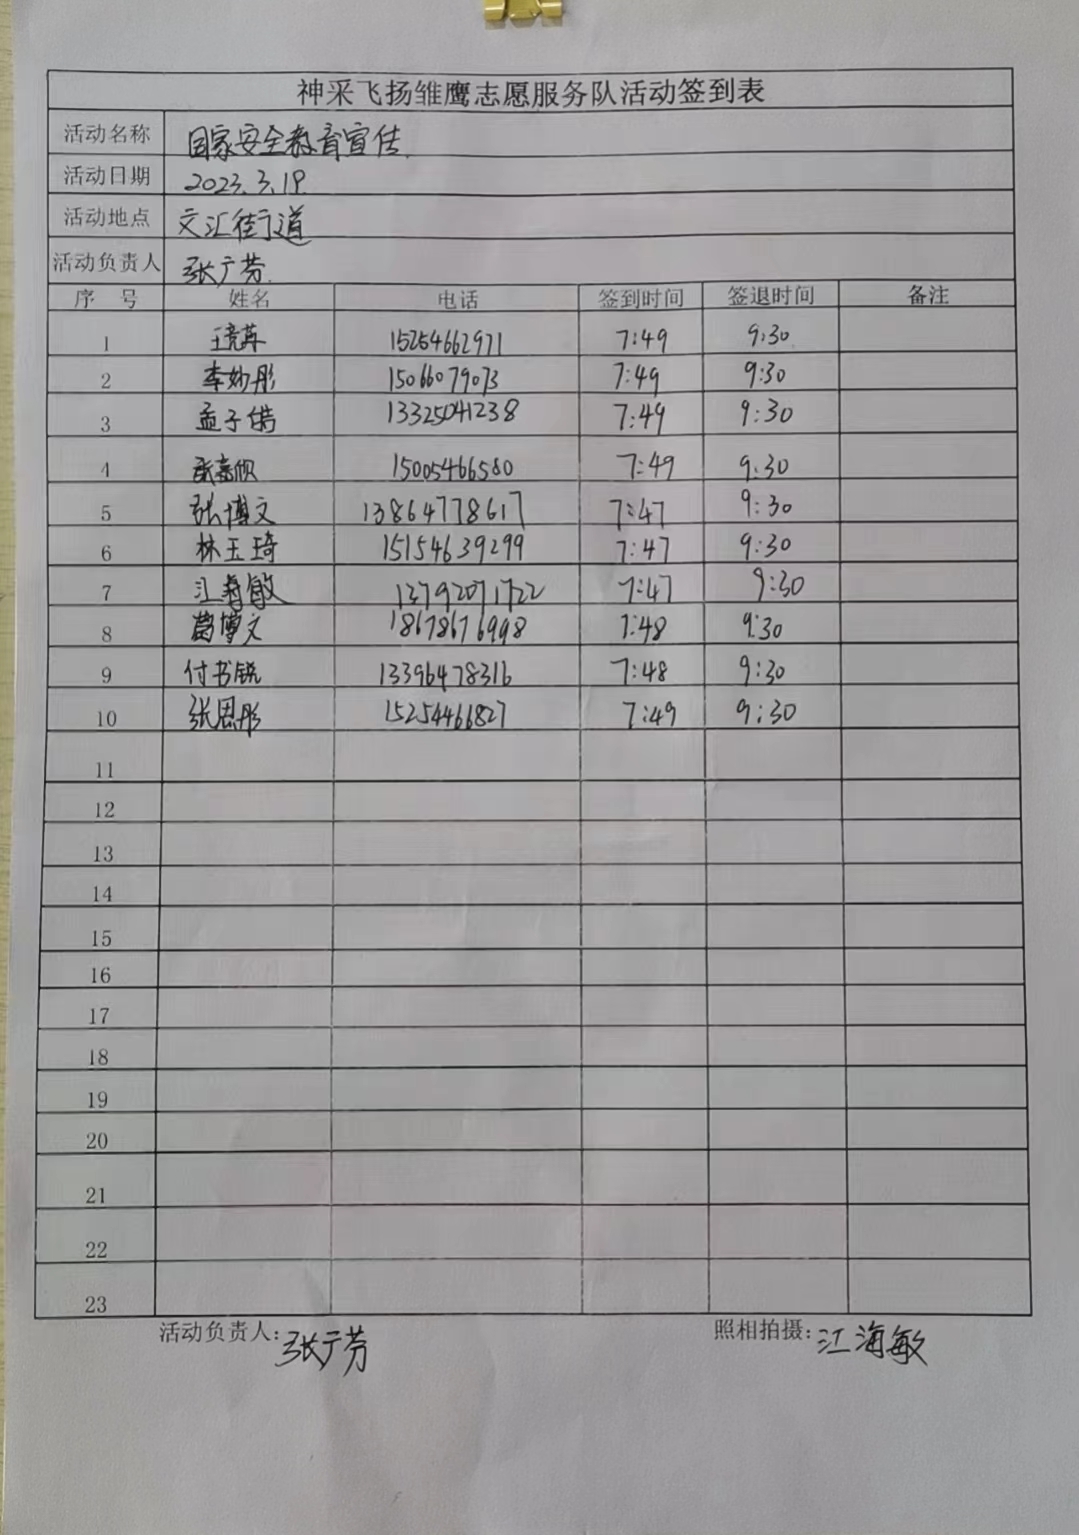 神采飞扬雏鹰志愿服务队活动签到表
活动名称 国家安全教育宣传.
活动日期 2023.3.19.
活动地点 文汇街道
活动负责人 张广芬.
序 号 姓名 电话 签到时间 签退时间 备注
1 15254662971 7:49 9:30
2 李妙彤 15066079073 7:49 9:30
3 孟子皓 13325041238 7:49 9:30
4 张嘉恒 15005466580 7:49 9:30
5 张博文 13864778617 7:47 9:30
6 林玉琦 15154639299 7:47 9:30
7 江海敏 13792071722 7:47 9:30
8 葛博文 18678676998 7:48 9:30
9 付书锐 13396478316 7:48 9:30
10 张思彤 15254466827 7:49 9:30
11
12
13
14
15
16
17
18
19
20
21
22
23
活动负责人: 张广芬 照相拍摄: 江海敏